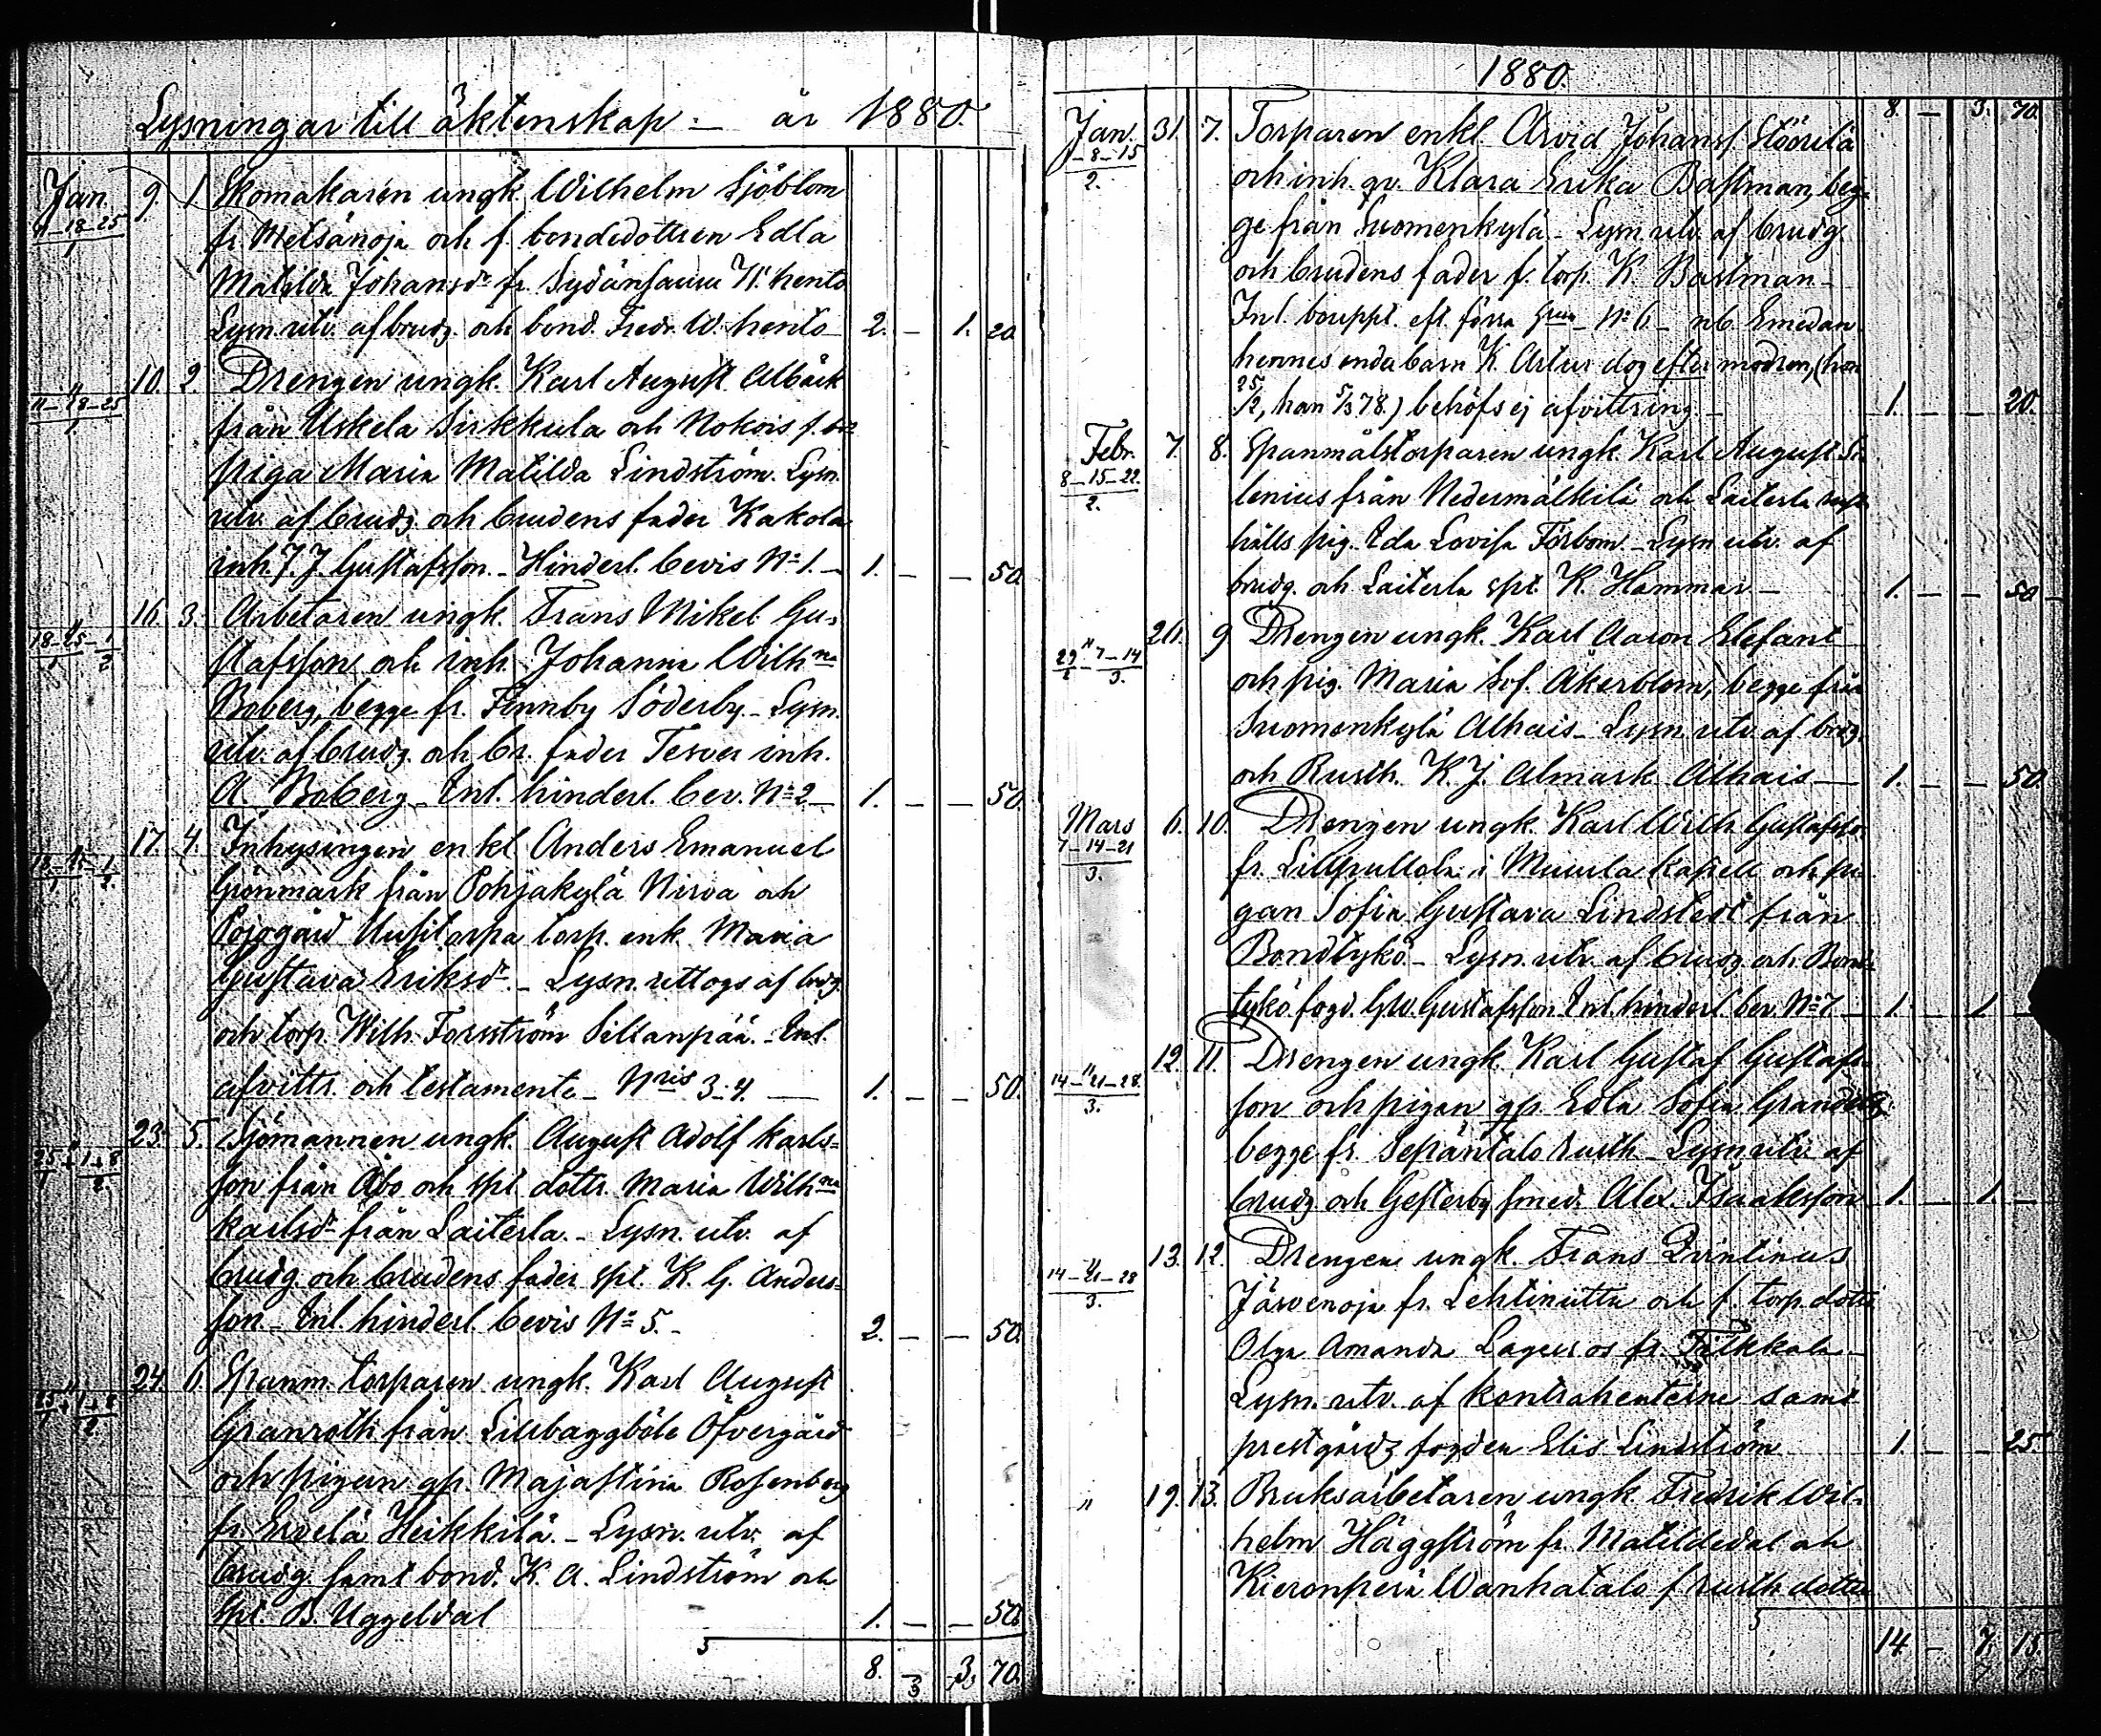 Lysningar till äktenskap – år 1880.
Jan. 9. 1. Skomakaren ungk. Wilhelm Sjöblom
11–18–25/1 fr. Metsänoja och f. bondedottren Edla
Matilda Johansdr fr. Sydänsauru W. hento
Lysn. utv. af brudg. och bond. Fredr. W. hento 2. – 1. 20
" 10. 2 Drengen ungk. Karl August Albäck
11–18–25/1 från Uskela Sirkkula och Nokois f.
piga Maria Matilda Lindström. Lysn.
utv. af brudg. och brudens fader Kakola
inh. J. J. Gustafsson. – Hinderl. bevis No 1. – 1. – – 50.
" 16. 3. Arbetaren ungk. Frans Mikel Gu-
18–25/1–1/2 stafsson och inh. Johanna Wilhna
Boberg, begge fr. Finnby Söderby. – Lysn.
utv. af brudg. och br. fader Tesver inh.
A. Boberg – Inl. hinderl. bev. No 2 – 1. – – 50.
" 17. 4. Inhysingen enkl. Anders Emanuel
18–25/1–1/2 Grönmark från Pohjakylä Nirva och
Pojogård Uusitorpa torp. enk. Maria
Gustava Eriksdr. – Lysn. uttogs af brdg.
och torp. Wilh. Forsström Siltanpää. – Inl.
afvittr. och testamente – Nris 3–4. – 1. – – 50.
" 23. 5. Sjömannen ungk. August Adolf Karls-
25/1+1+8/2 son från Åbo och spt. dottr. Maria Wilhna
Karlsdr från Laiterla. – Lysn. utv. af
brudg. och brudens fader spt. K. G. Anders-
son – Inl. hinderl. bevis No 5. – 2. – – 50.
" 24. 6. Spanm. torparen ungk. Karl August
25/1+1+8/2 Granroth från Lillbaggböle Öfvergård
och pigan qp. Majastina Rosenberg
fr. Ervelä Heikkilä. – Lysn. utv. af
brudg. samt bond. K. A. Lindström och
spt. B. Uggeldal 1. – – 50.
8. – 3. 70.
1880.
8. – 3. 70.
Jan. 31. 7. Torparen enkl. Arvid Johanss. Stöörilä
–8–15/2. och inh. qv. Klara Erika Bastman, beg-
ge från Suomenkylä – Lysn. utv. af brudg.
och brudens fader f. torp. K. Bastman –
Inl. bouppt. eft. förra – No 6 – nb. Emedan
hennes enda barn K. Artur dog efter modren, (hon
25/2, han 5/3 78.) behöfs ej afvittring. – 1. – – 20.
Febr. 7. 8. Spanmålstorparen ungk. Karl August Se-
8–15–22./2. lenius från Nedermälkilä och Laiterla rust-
hålls pig. Ida Lovisa Forbom – Lysn utv. af
brudg. och Laiterla spt. K. Hammar – 1. – – 50
" 26. 9 Drengen ungk. Karl Aaron Elefant
29/2–7–14/3. och pig. Maria Sof. Åkerblom, begge från
Suomenkylä Alhais – Lysn. utv. af brdg.
och Rusth. K. J. Almark Alhais – 1. – – 50.
Mars 6. 10. Drengen ungk. Karl Wilh. Gustafsson
7–14–21/3. fr. Lillpullola i Muurla kapell och pi-
gan Sofia Gustava Lindstedt från
Bondtykö – Lysn. utv. af brudg. och Bond-
tykö fogd. G.W. Gustafsson. Inl. hinderl. bev. No 7 – 1. – 1. –
" 12. 11. Drengen ungk. Karl Gustaf Gustafs-
14–21–28./3. son och pigan qp. Edla Sofia
begge fr. Sepäntalo rusth – Lysn. utv. af
brudg. och Gesterby smed. Alex. Isaaksson 1. – 1. –
" 13. 12. Drengen ungk. Frans Qvintinus
14–21–28/3. Järvenoja fr. Lehtiniittu och f. torp. dottr
Olga Amanda Lagur os fr. Talkkala –
Lysn. utv. af kontrahenterne samt
prestgårds fogden Elis Lindström 1. – – 25
" 19. 13. Bruksarbetaren ungk. Fredrik Wil-
helm Häggström fr. Matildedal och
Kieronperä Wanhatalo f. rusth. dottr
14 – 7. 15.